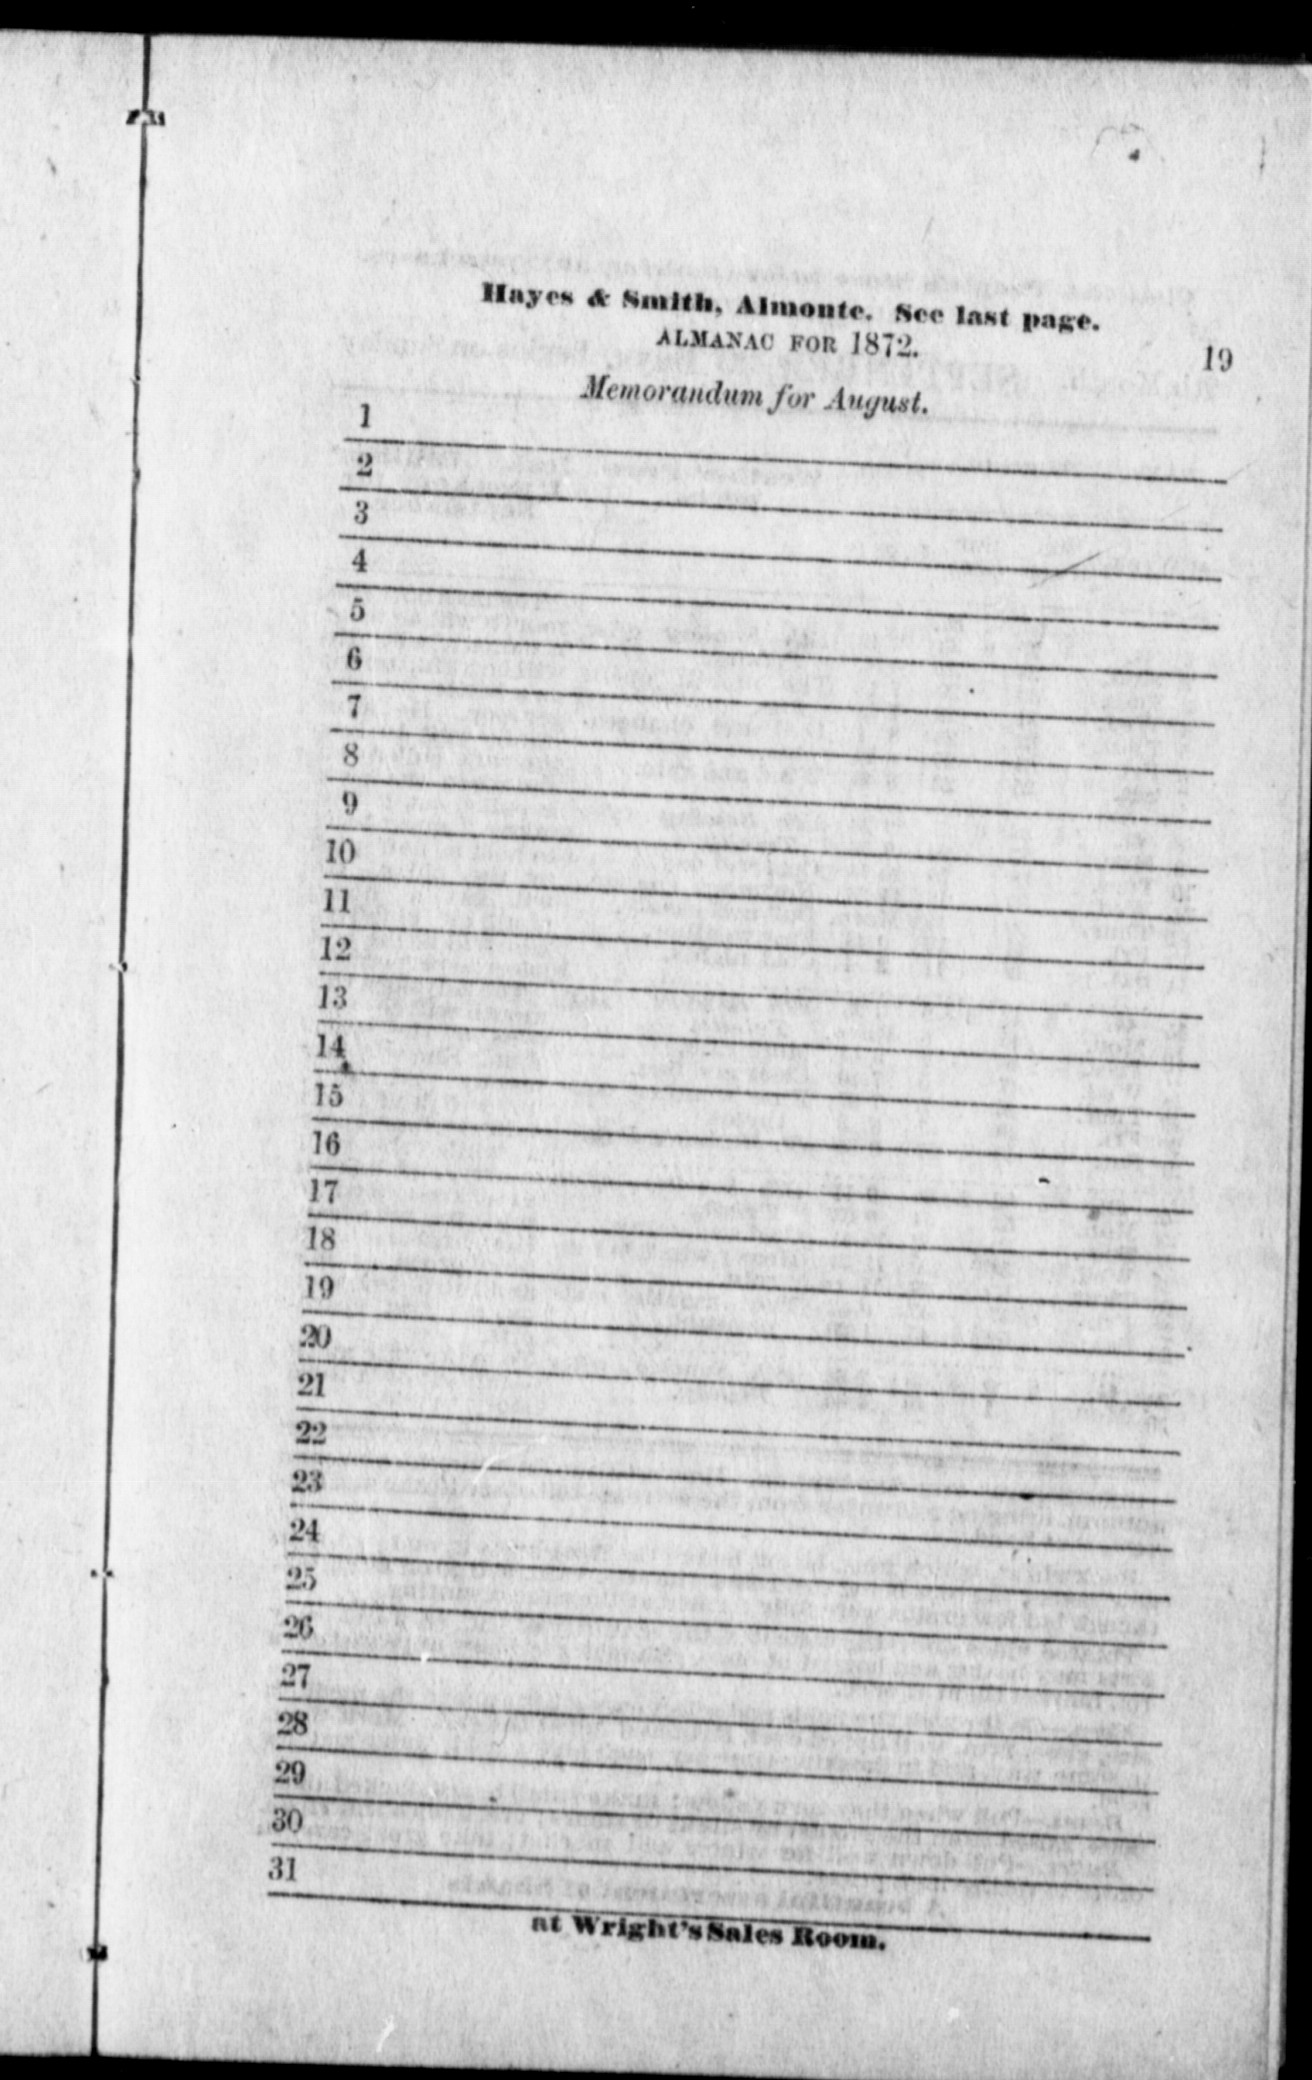 Hayes & Smith, Almonte. See last page.
ALMANAC FOR 1872. 19
Memorandum for August.
1
2
3
4
5
6
7
8
9
10
11
12
13
14
15
16
17
18
19
20
21
22
23
24
25
26
27
28
29
30
31
at Wright's Sales Room.